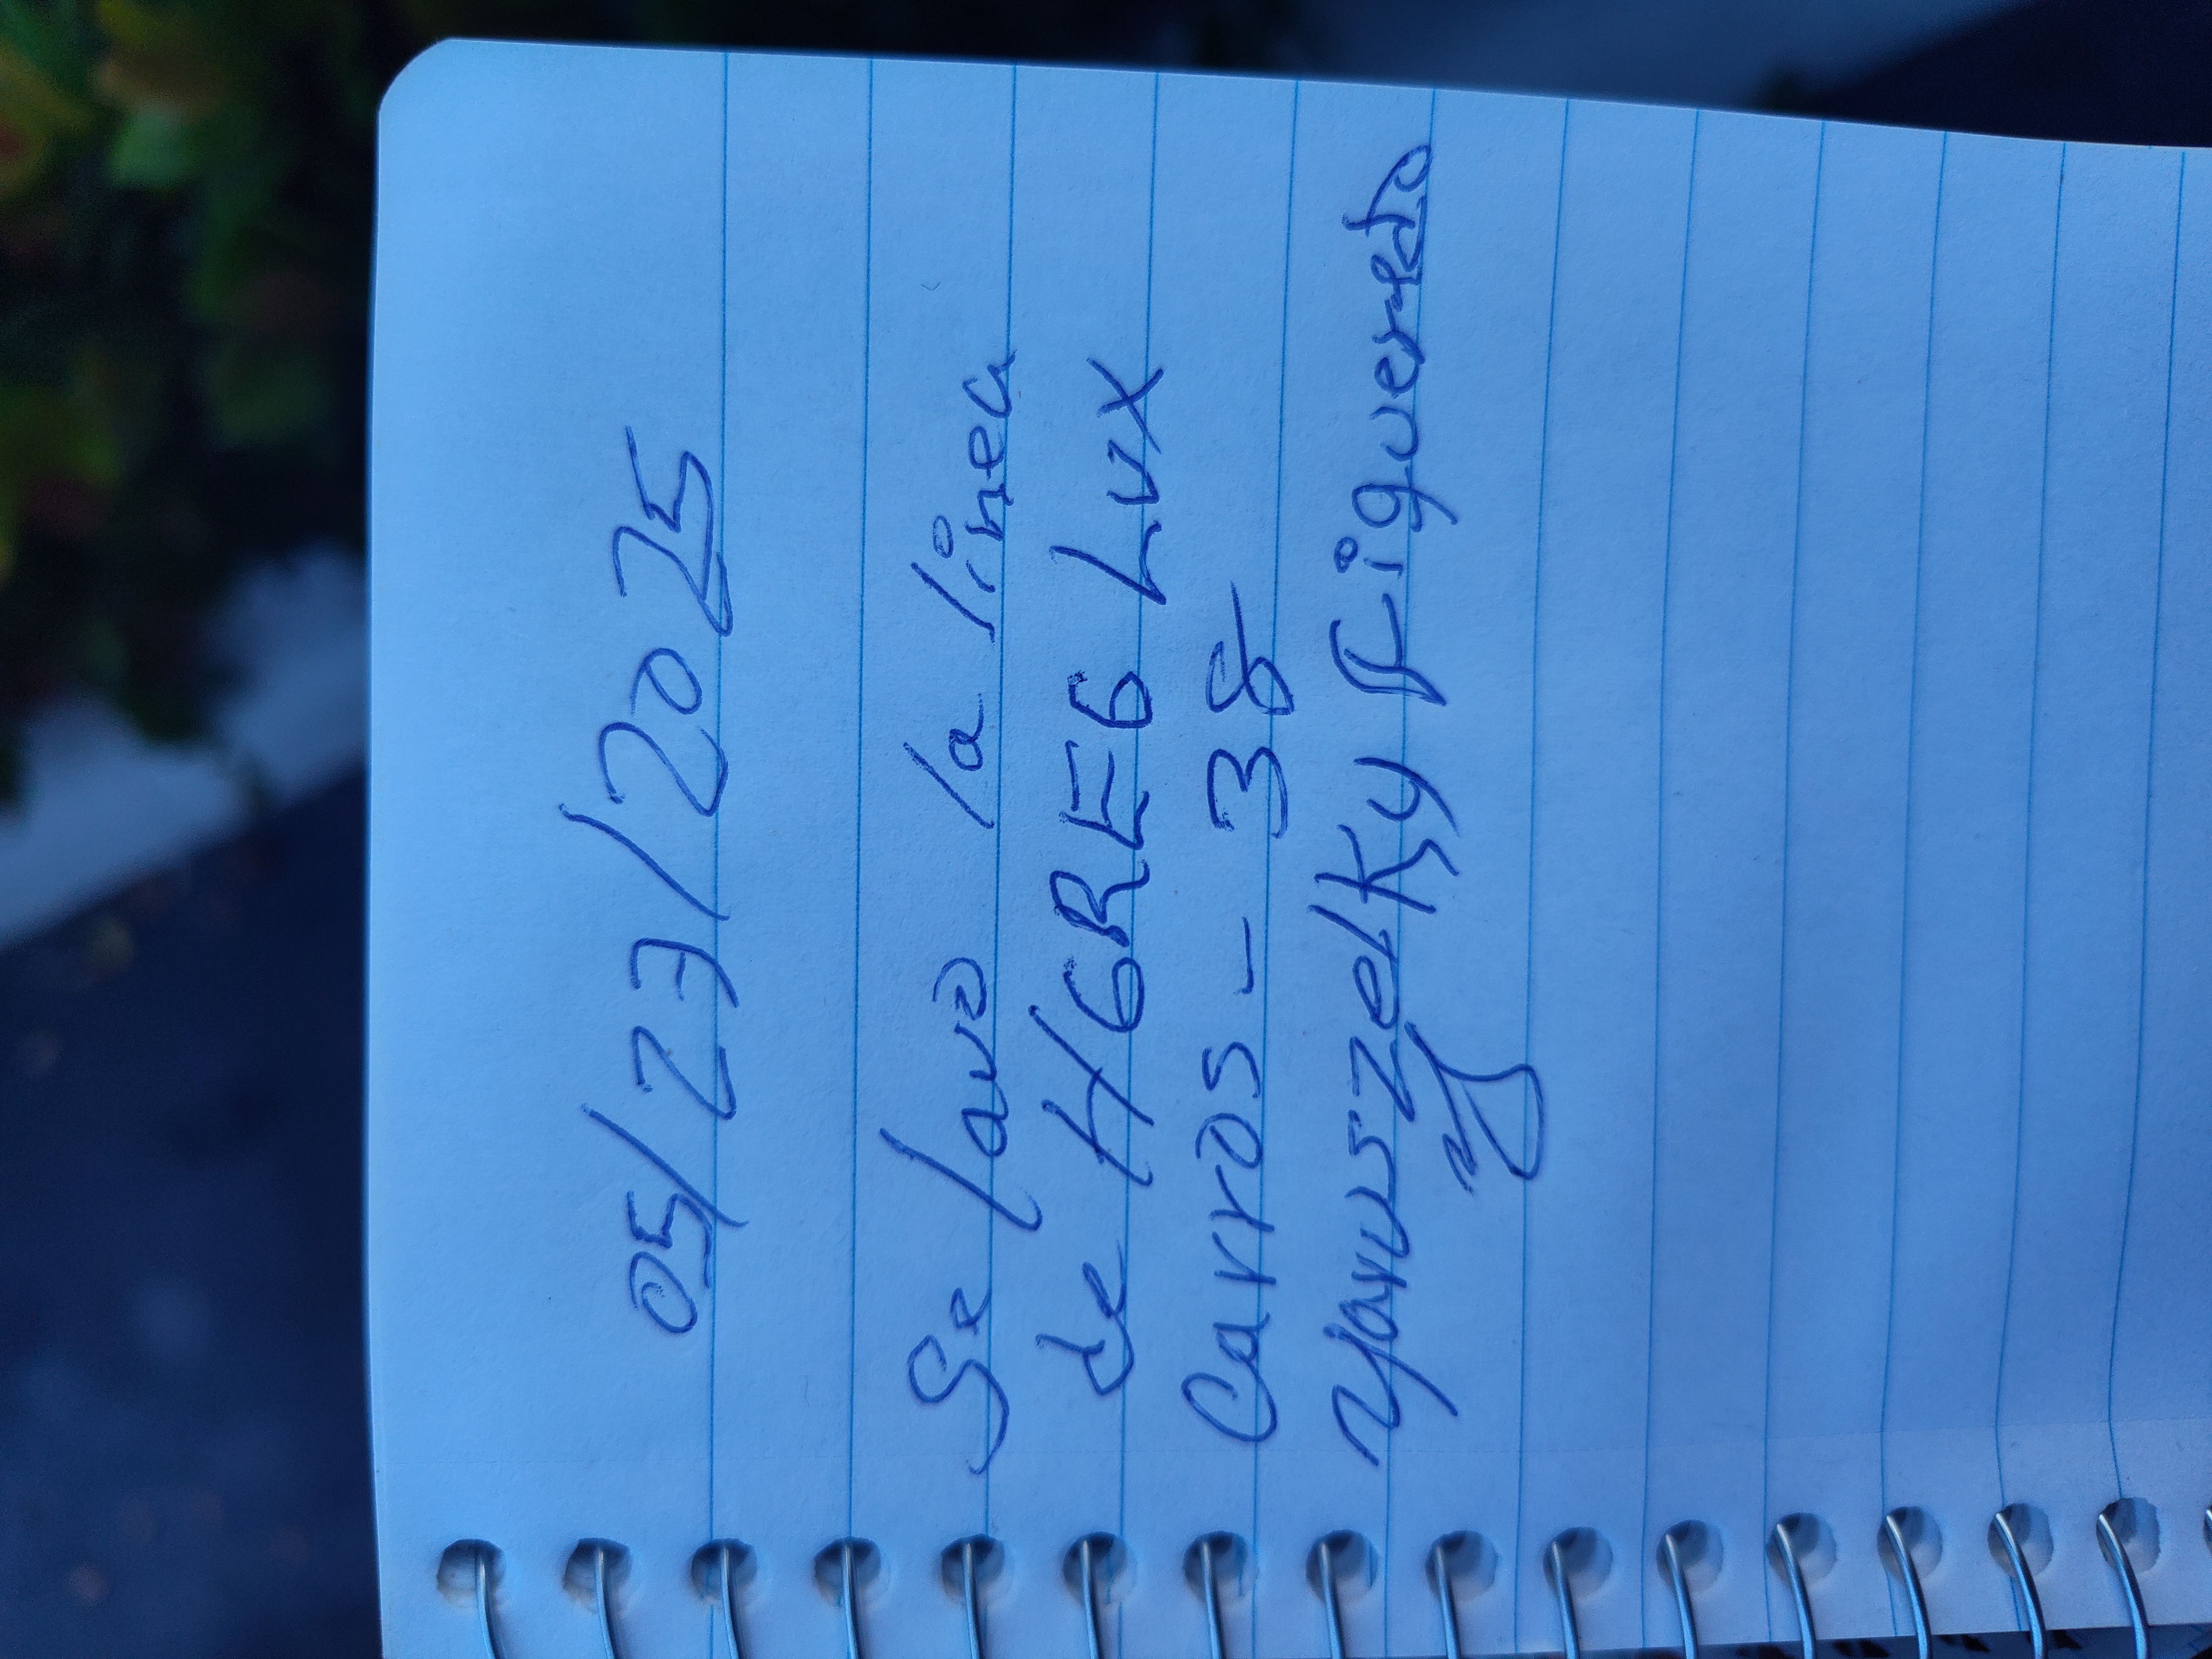 05/27/2025
Se lavo la linea
de HGREG Lux
Carros - 38
Yaruszelky Figueredo